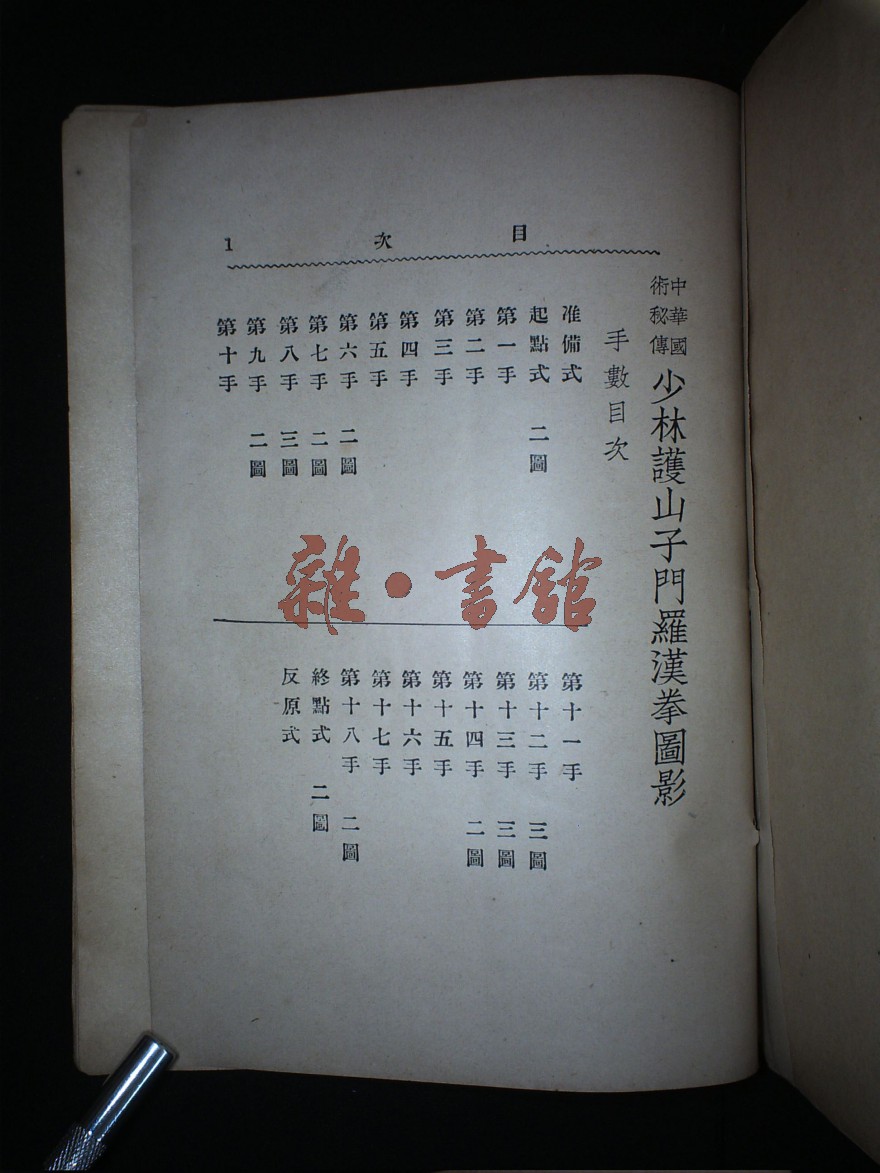 目次 1
中華國術秘傳
少林護山子門羅漢拳圖影
手數目次
准備式
起點式 二圖
第一手
第二手
第三手
第四手
第五手
第六手 二圖
第七手 二圖
第八手 三圖
第九手 二圖
第十手
第十一手
第十二手 三圖
第十三手 三圖
第十四手 二圖
第十五手
第十六手
第十七手
第十八手 二圖
終點式 二圖
反原式
雜·書館